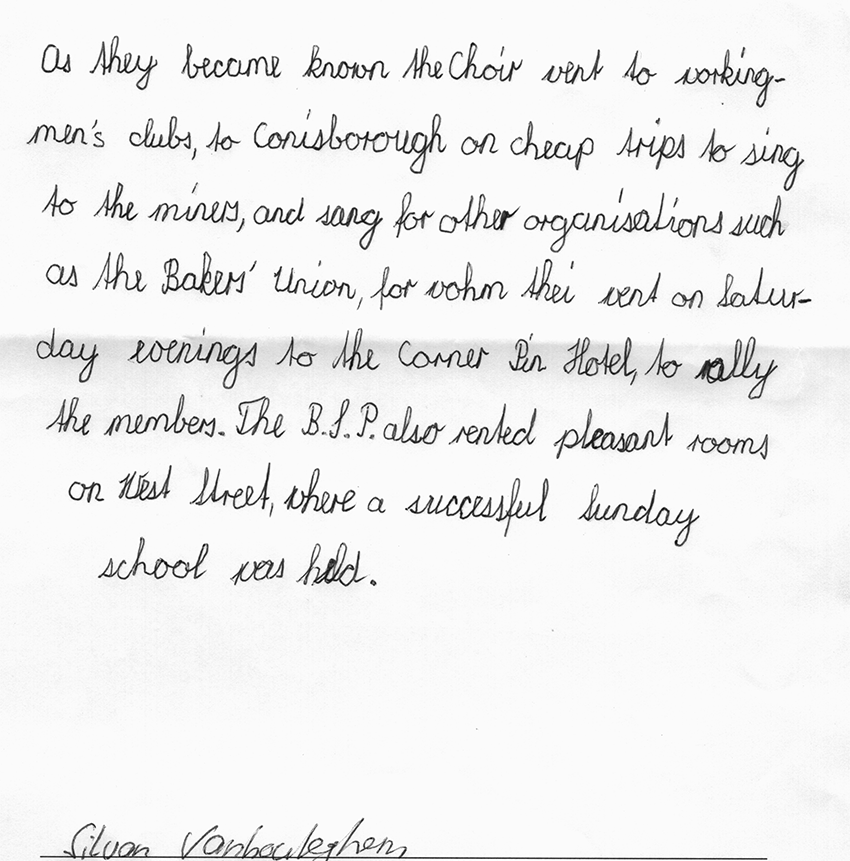 As they became known the Choir went to working-
men's clubs, to Conisborough on cheap trips to sing
to the miners, and sang for other organisations such
as the Bakers' Union, for vohm thei went on Satur-
day evenings to the Corner Pin Hotel, to rally
the members. The B.S.P. also rented pleasant rooms
on West Street, where a successful Sunday
school was held.
Silvan